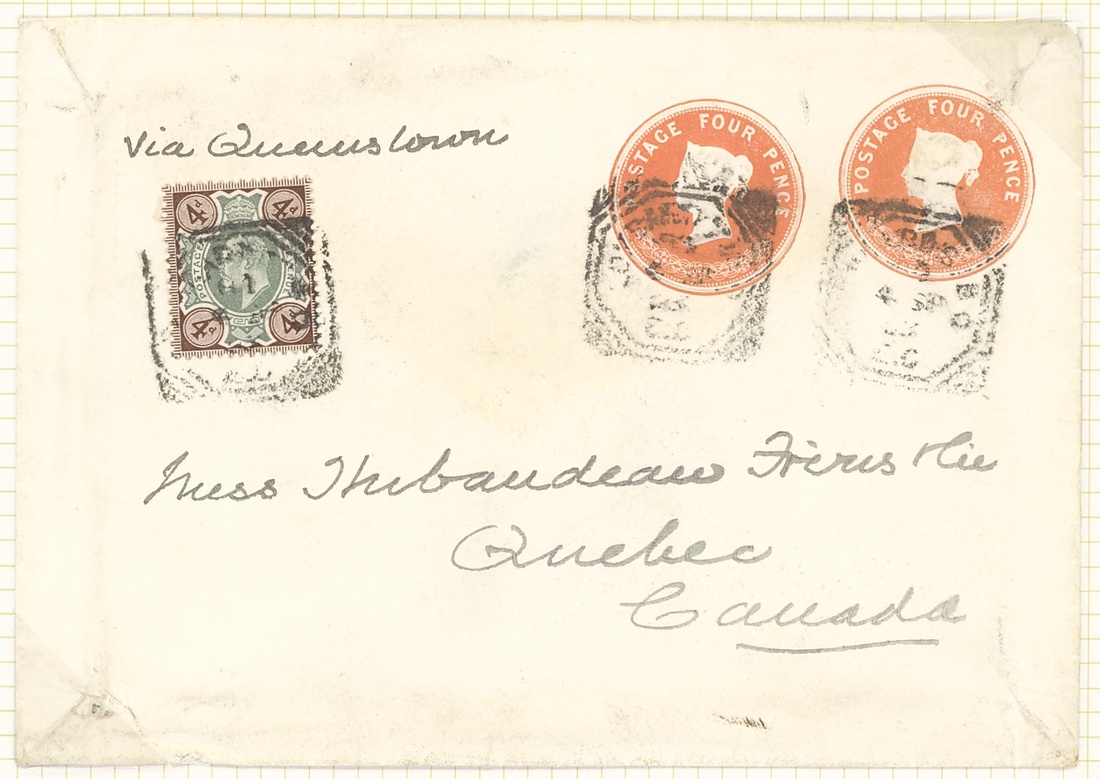 via Queenstown
POSTAGE FOUR PENCE
POSTAGE FOUR PENCE
4d 4d
POSTAGE
4d 4d
Mess Thibaudeau Frères & Cie
Quebec
Canada